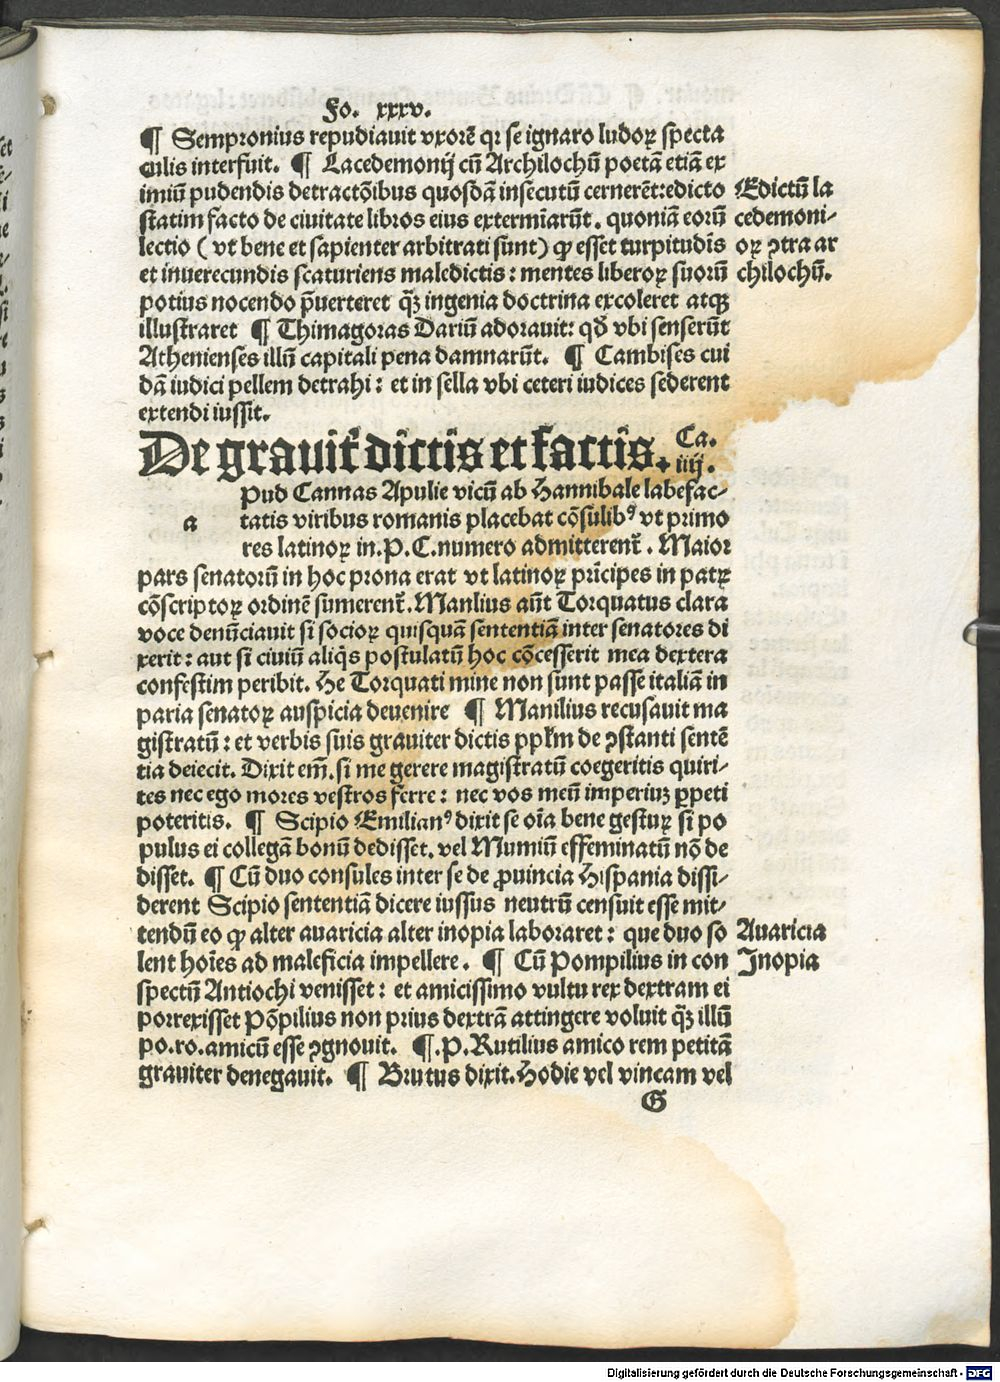 Fo. xxxv.
¶ Sempronius repudiauit vxorẽ qꝛ se ignaro ludoꝝ specta
culis interfuit. ¶ Lacedemonij cũ Archilochũ poetã etiã ex
imiũ pudendis detractõibus quosdã insecutũ cernerẽt: edicto
statim facto de ciuitate libros eius extermĩarũt. quoniã eorũ
lectio ( vt bene et sapienter arbitrati sunt) ꝙ esset turpitudĩs
et inuerecundis scaturiens maledictis: mentes liberoꝝ suorũ
potius nocendo p̃uerteret q̃ꝫ ingenia doctrina excoleret atqꝫ
illustraret ¶ Thimagoras Dariũ adorauit: qď vbi senserũt
Athenienses illũ capitali pena damnarũt. ¶ Cambises cui
dã iudici pellem detrahi: et in sella vbi ceteri iudices sederent
extendi iussit.
Edictũ la
cedemoni-
oꝝ ꝯtra ar
chilochũ.
De grauit̃ dictis et factis. Ca.
iiij.
a
Pud Cannas Apulie vicũ ab Hannibale labefac-
tatis viribus romanis placebat cõsulibꝰ vt primo
res latinoꝝ in .P.C. numero admitterent̃. Maior
pars senatorũ in hoc prona erat vt latinoꝝ prĩcipes in patꝝ
cõscriptoꝝ ordinẽ sumerent̃. Manlius aũt Torquatus clara
voce denũciauit si socioꝝ quisquã sententiã inter senatores di
xerit: aut si ciuiũ aliq̃s postulatũ hoc cõcesserit mea dextera
confestim peribit. He Torquati mine non sunt passe italiã in
paria senatoꝝ auspicia deuenire ¶ Manilius recusauit ma
gistratũ: et verbis suis grauiter dictis pplm̃ de ꝯstanti sentẽ
tia deiecit. Dixit em̃. si me gerere magistratũ coegeritis quiri-
tes nec ego mores vestros ferre: nec vos meũ imperiuꝫ ꝑpeti
poteritis. ¶ Scipio Emilianꝰ dixit se oĩa bene gestuꝝ si po
pulus ei collegã bonũ dedisset. vel Mumiũ effeminatũ nõ de
disset. ¶ Cũ duo consules inter se de ꝓuincia Hispania dissi-
derent Scipio sententiã dicere iussus neutrũ censuit esse mit-
tendũ eo ꝙ alter auaricia alter inopia laboraret: que duo so
lent hoĩes ad maleficia impellere. ¶ Cũ Pompilius in con
spectũ Antiochi venisset: et amicissimo vultu rex dextram ei
porrexisset Põpilius non prius dextrã attingere voluit q̃ꝫ illũ
po.ro.amicũ esse ꝯgnouit. ¶ .P. Rutilius amico rem petitã
grauiter denegauit. ¶ Brutus dixit. Hodie vel vincam vel
Auaricia
Inopia
G
Digitalisierung gefördert durch die Deutsche Forschungsgemeinschaft - DFG